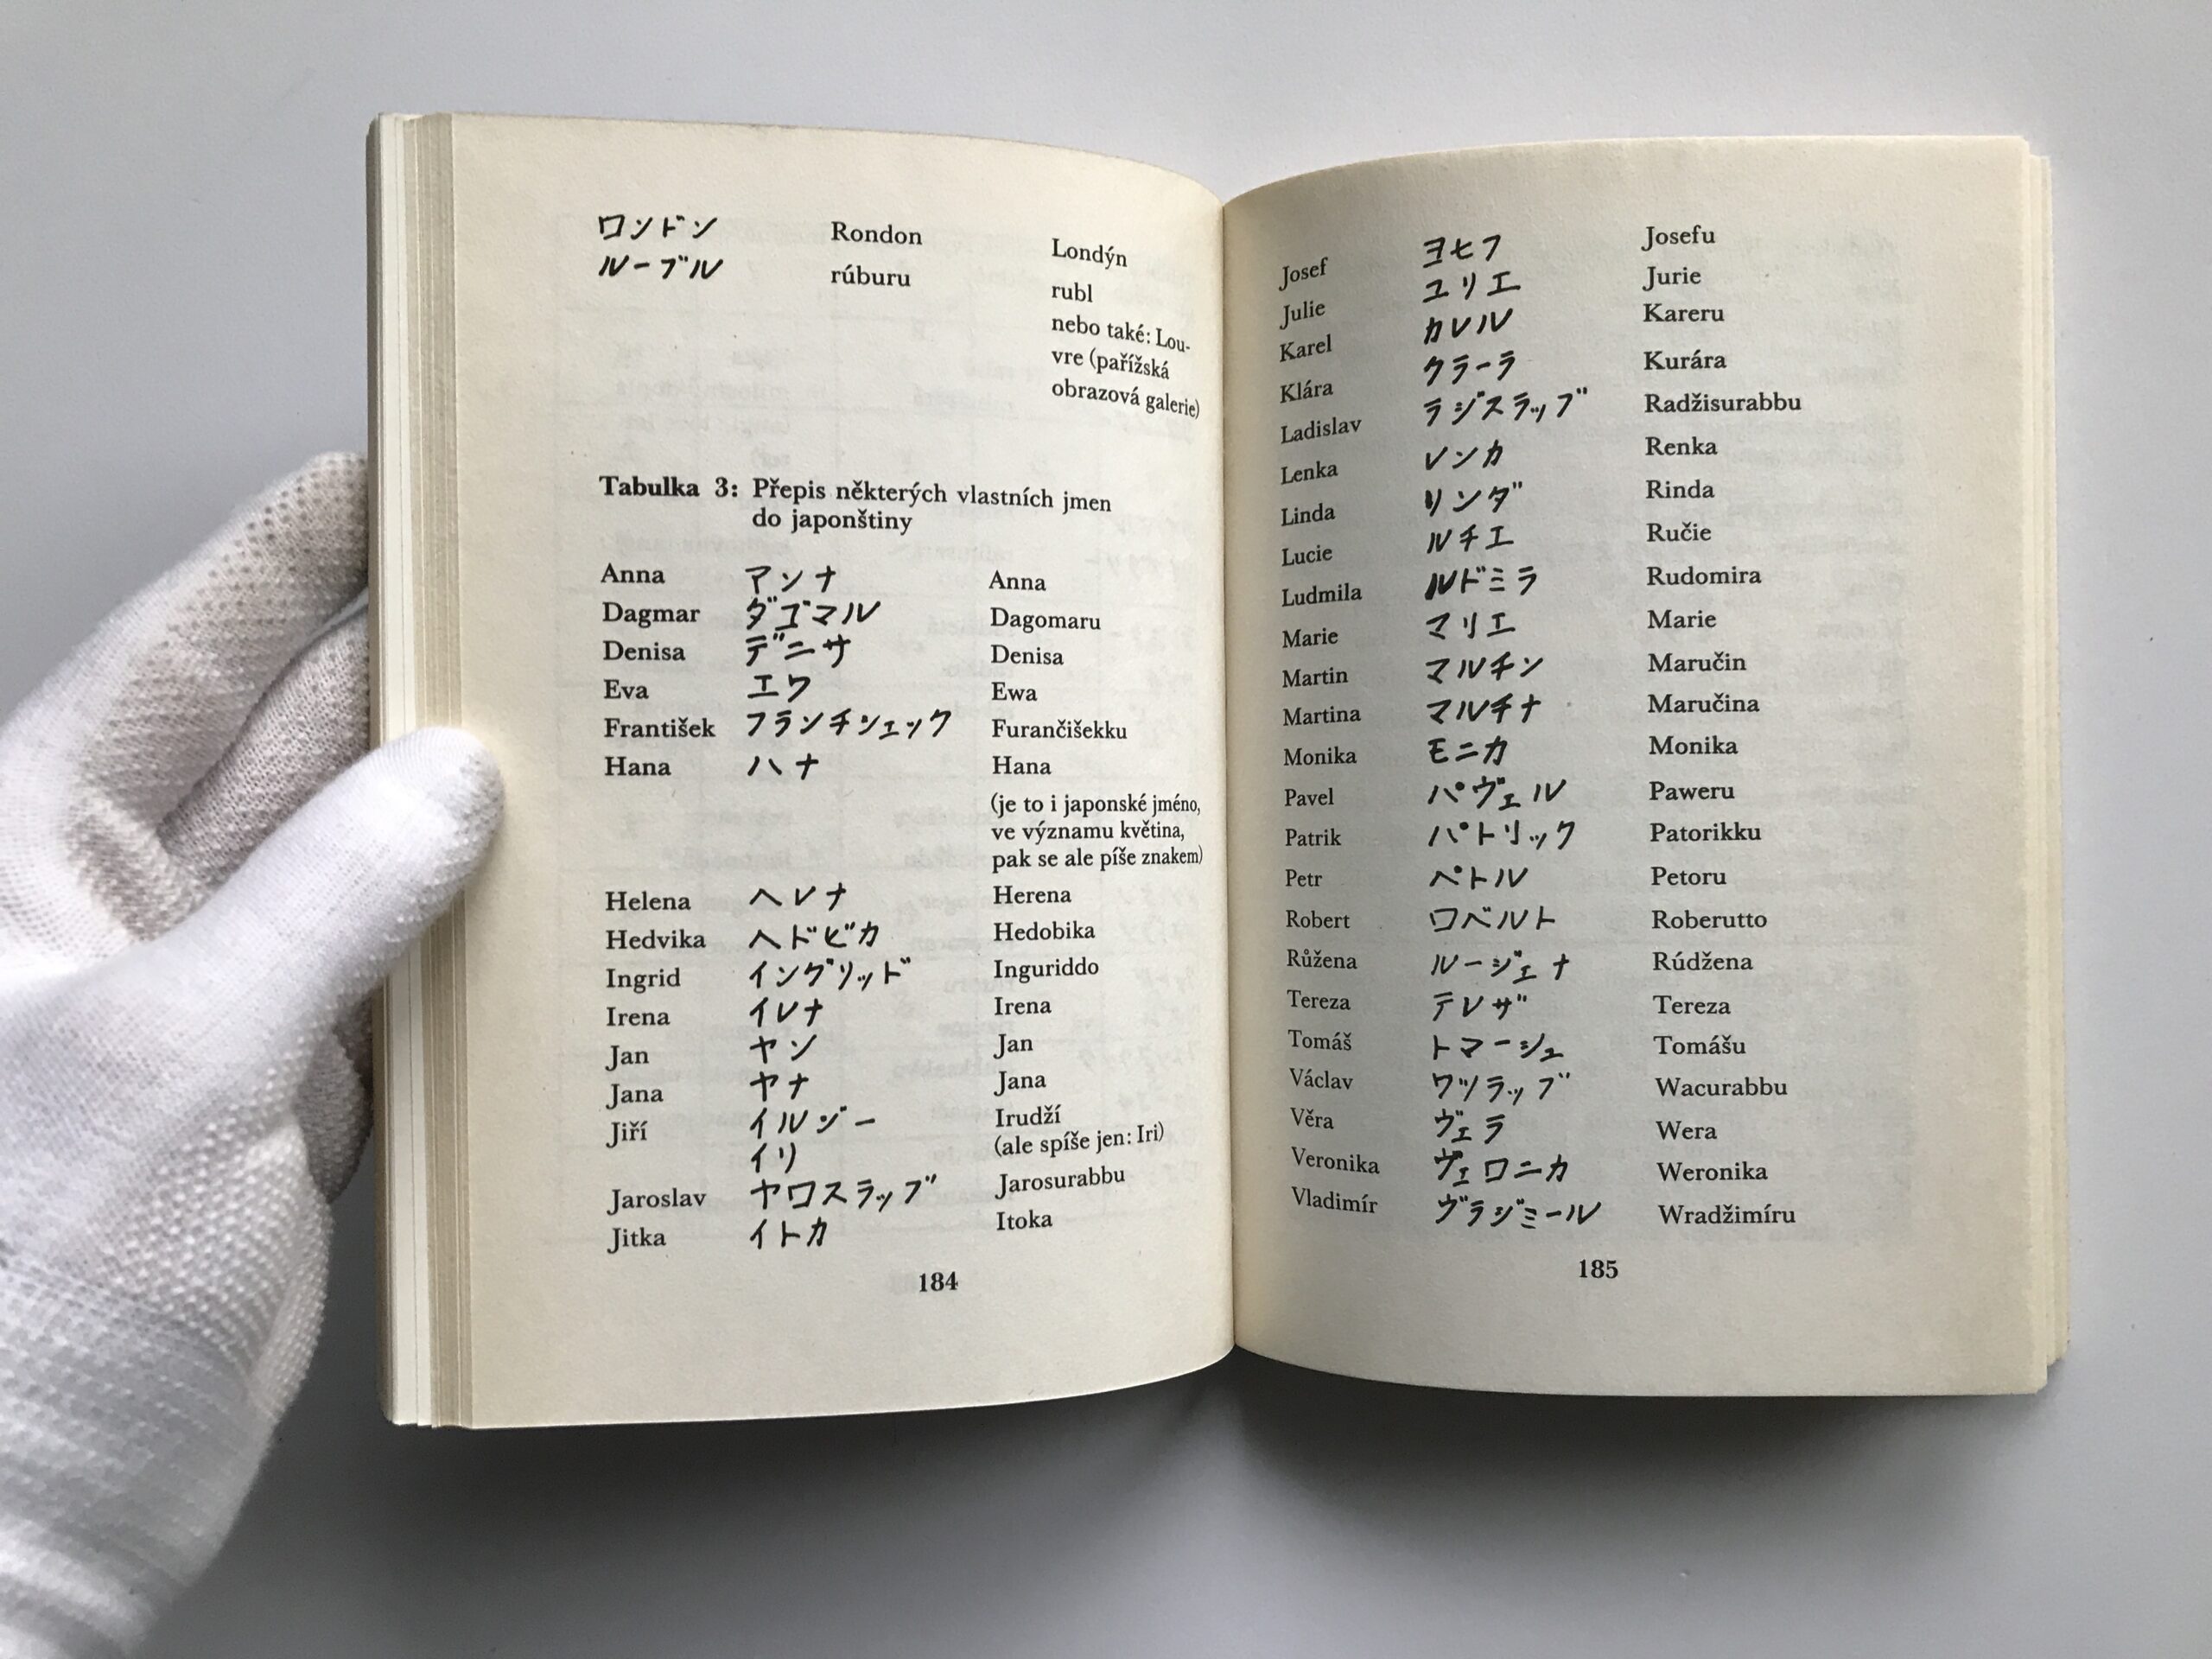 ロンドン Rondon Londýn
ルーブル rúburu rubl
nebo také: Lou-
vre (pařížská
obrazová galerie)
Tabulka 3: Přepis některých vlastních jmen
do japonštiny
Anna アンナ Anna
Dagmar ダゴマル Dagomaru
Denisa デニサ Denisa
Eva エワ Ewa
František フランチシェック Furančišekku
Hana ハナ Hana
(je to i japonské jméno,
ve významu květina,
pak se ale píše znakem)
Helena ヘレナ Herena
Hedvika ヘドビカ Hedobika
Ingrid イングリッド Inguriddo
Irena イレナ Irena
Jan ヤン Jan
Jana ヤナ Jana
Jiří イルジー Irudží
イリ (ale spíše jen: Iri)
Jaroslav ヤロスラッブ Jarosurabbu
Jitka イトカ Itoka
184
Josef ヨセフ Josefu
Julie ユリエ Jurie
Karel カレル Kareru
Klára クラーラ Kurára
Ladislav ラジスラッブ Radžisurabbu
Lenka レンカ Renka
Linda リンダ Rinda
Lucie ルチエ Ručie
Ludmila ルドミラ Rudomira
Marie マリエ Marie
Martin マルチン Maručin
Martina マルチナ Maručina
Monika モニカ Monika
Pavel パヴェル Paweru
Patrik パトリック Patorikku
Petr ペトル Petoru
Robert ロベルト Roberutto
Růžena ルージェナ Rúdžena
Tereza テレザ Tereza
Tomáš トマーシュ Tomášu
Václav ワツラッブ Wacurabbu
Věra ヴェラ Wera
Veronika ヴェロニカ Weronika
Vladimír ヴラジミール Wradžimíru
185